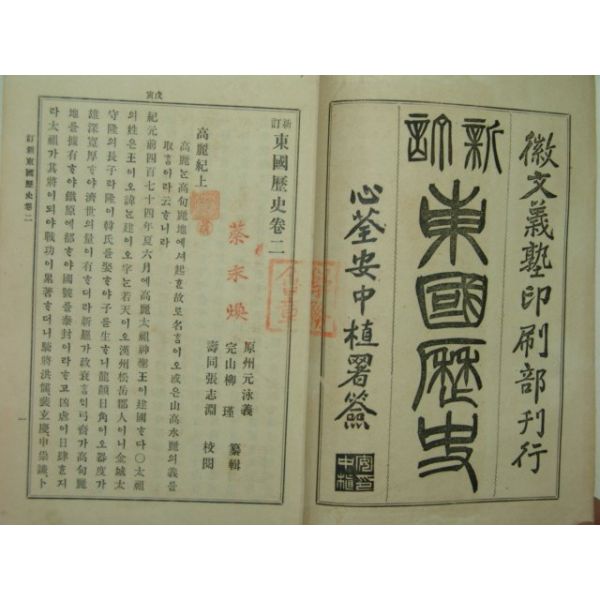 徽文義塾印刷部刊行
新訂
東國歷史
心荃安中植署簽
戊寅
新訂東國歷史卷二
原州元泳義
完山柳瑾 纂輯
壽同張志淵 校閱
蔡永煥
高麗紀上
高麗는高句麗地에셔起혼故로名홈이오或은山高水麗의義를
取홈이라云니라
紀元前四百七十四年夏六月에高麗太祖神聖王이建國다〇太祖
의姓은王이오諱는建이오字는若天이오漢州松岳郡人이니金城太
守隆의長子라隆이韓氏를娶야子를生니龍顔日角이오器度가
雄深寬厚야濟世의量이有더라新羅가政衰裔가高句麗
地를據有야鐵原에都야國號를泰封이라고凶虐이日肆지
라太祖가其將이되야戰功이累著더니騎將洪儒裴玄慶申崇謙卜
訂新東國歷史卷二
一